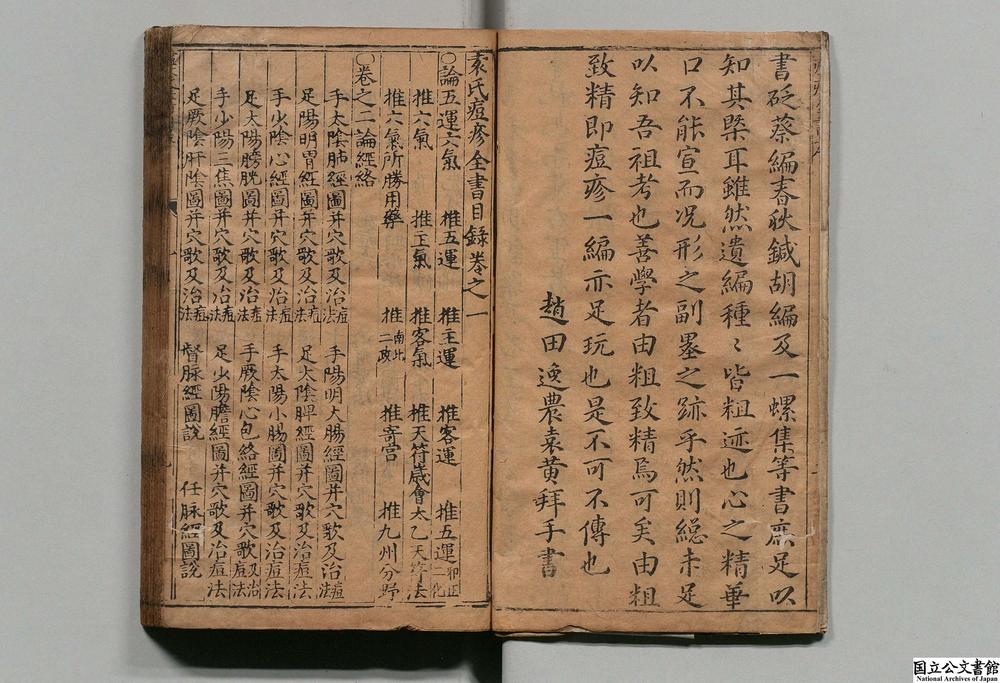 書砭蔡編春秋鍼胡編及一螺集等書庶足以
知其槩耳雖然遺編種〻皆粗迹也心之精華
口不能宣而况形之副墨之跡乎然則縂未足
以知吾祖考也善學者由粗致精焉可矣由粗
致精即痘疹一編亦足玩也是不可不傳也
趙田逸農袁黃拜手書
袁氏痘疹全書目錄卷之一
○論五運六氣 推五運 推主運 推客運 推五運
推六氣 推主氣 推客氣 推天符歲會太乙天符法
推六氣所勝用藥 推南北二政 推寄宮 推九州分野
○卷之二論經絡
手太陰肺經圖并穴歌及治痘法 手陽明大腸經圖并穴歌及治痘法
足陽明胃經圖并穴歌及治痘法 足太陰脾經圖并穴歌及治痘法
手少陰心經圖并穴歌及治痘法 手太陽小腸圖并穴歌及治痘法
足太陽膀胱圖并穴歌及治痘法 手厥陰心包絡經圖并穴歌及治痘法
手少陽三焦圖并穴歌及治痘法 足少陽膽經圖并穴歌及治痘法
足厥陰肝陰圖并穴歌及治痘法 督脉經圖說 任脉經圖說
国立公文書館
National Archives of Japan